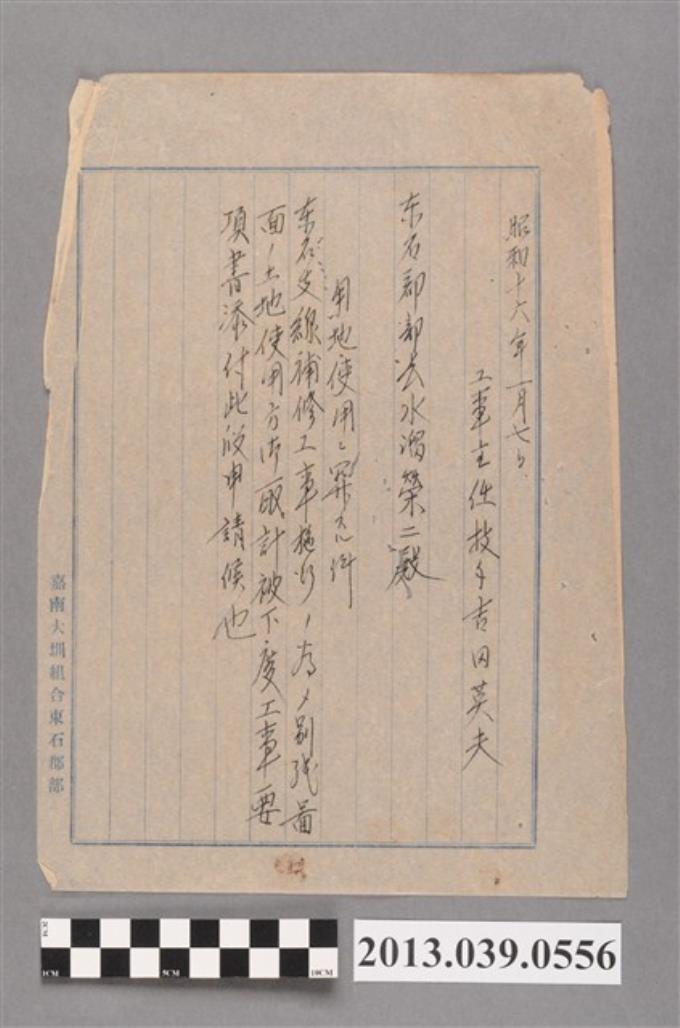 昭和十六年一月七日
工事主任技手吉田英夫
东石郡部長水溜榮二殿
用地使用ニ関スル件
东石支線補修工事施行ノ為メ別紙圖
面ノ土地使用方御取計被下度工事要
項書添付此段申請候也
嘉南大圳組合東石郡部
2CM
1CM
5CM
10CM
2013.039.0556